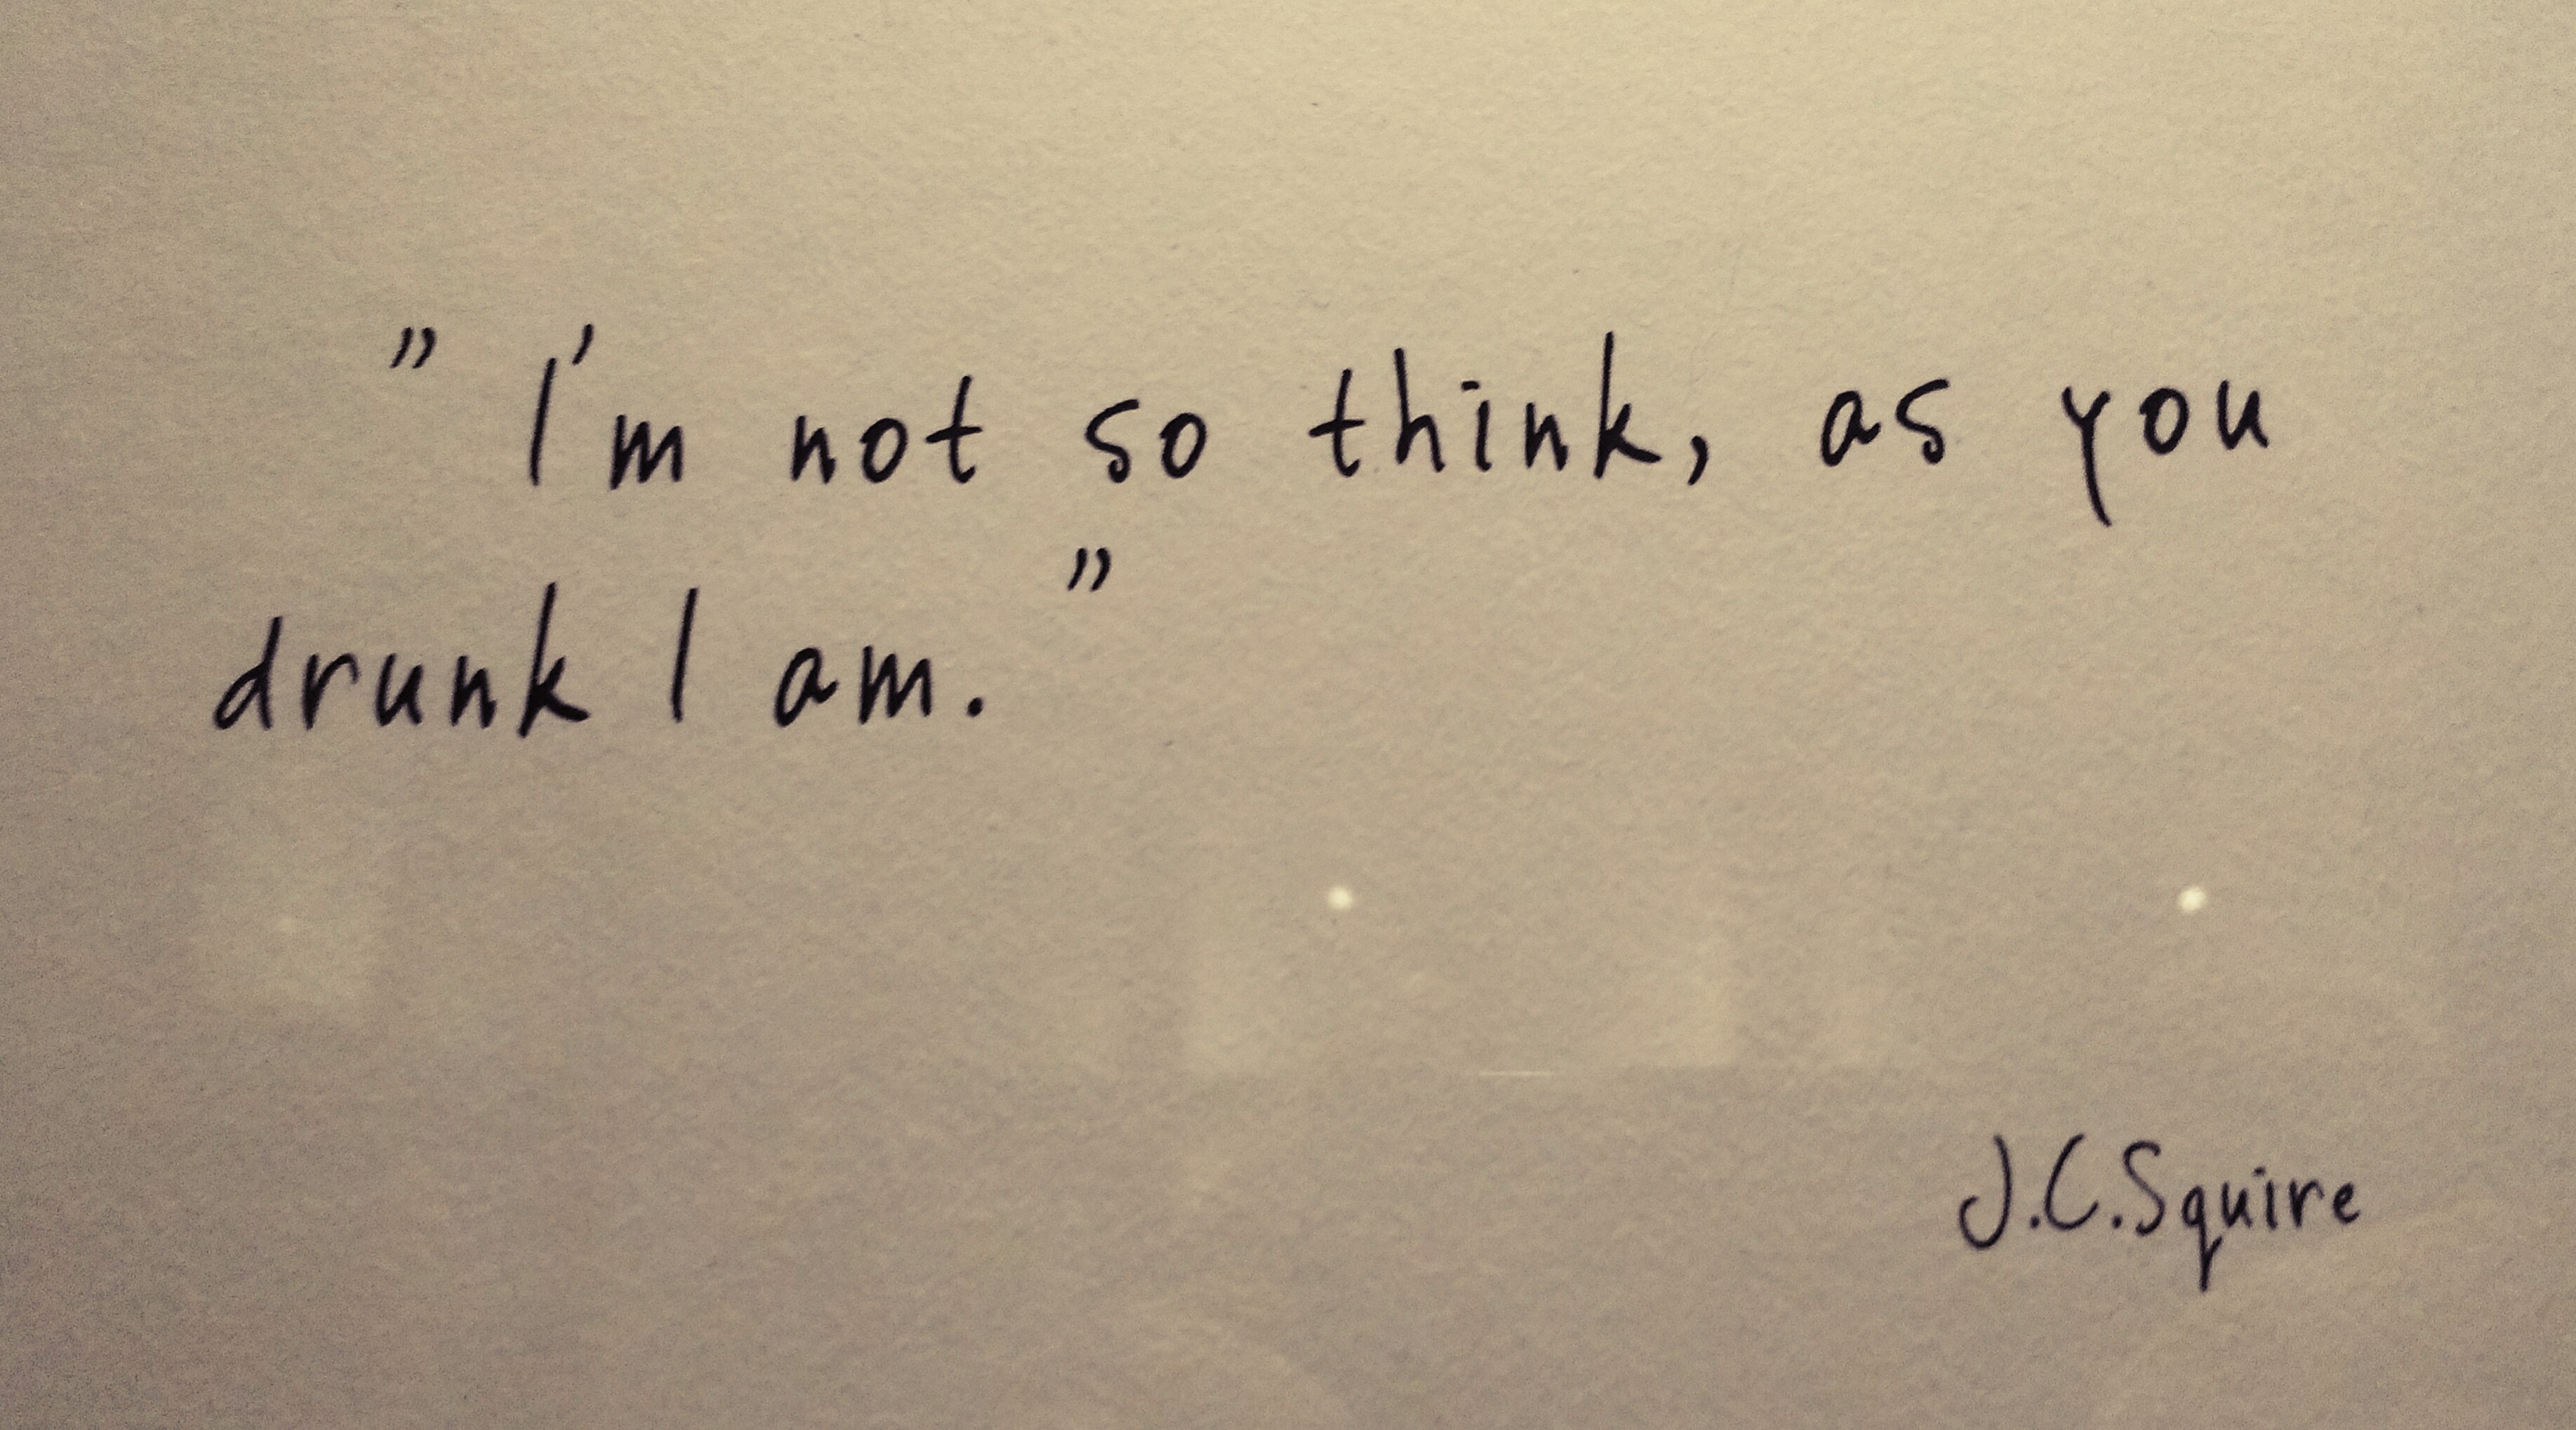 ” I'm not so think, as you
drunk I am. ”
J.C.Squire